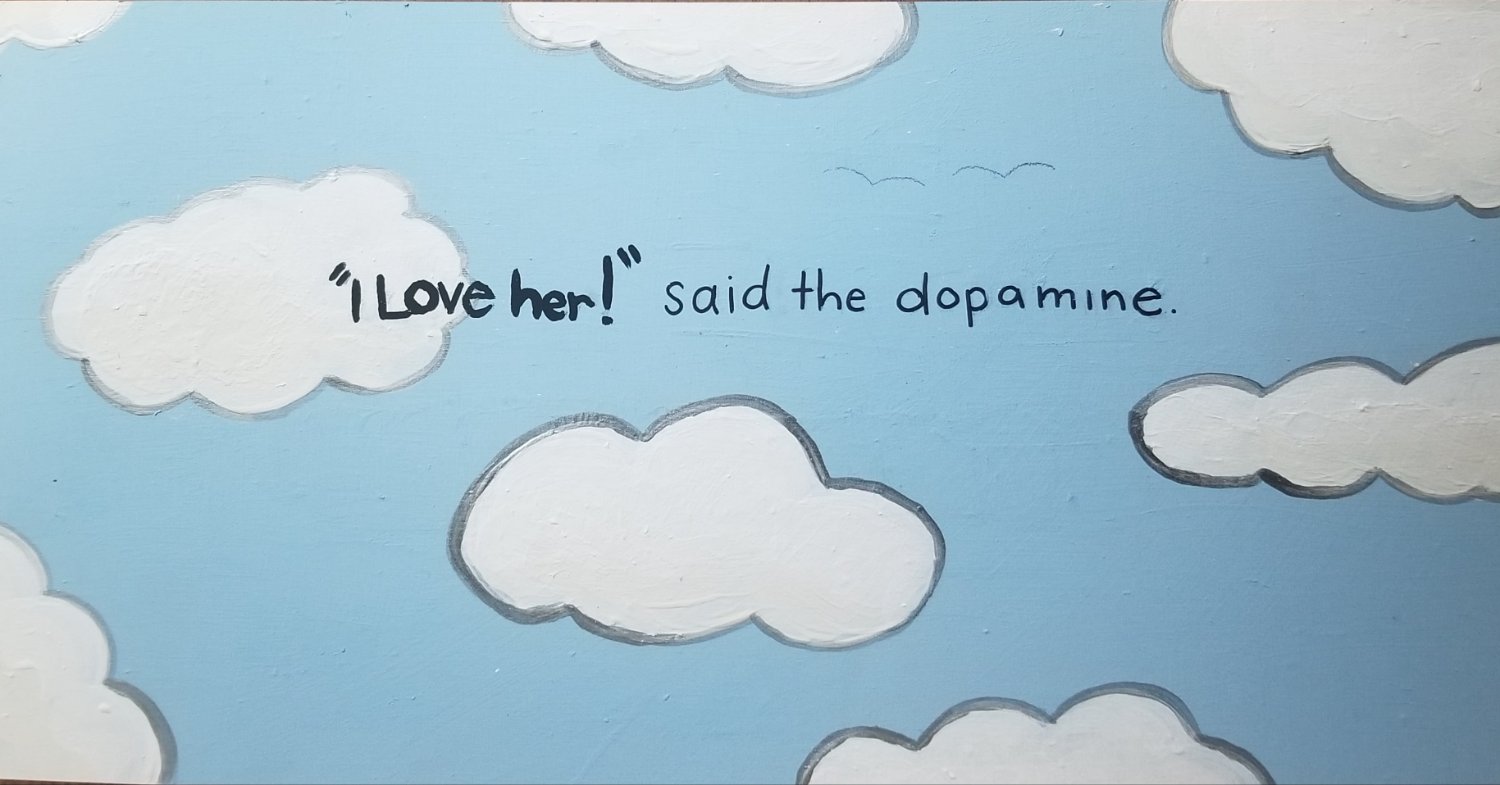 "I Love her!" said the dopamine.